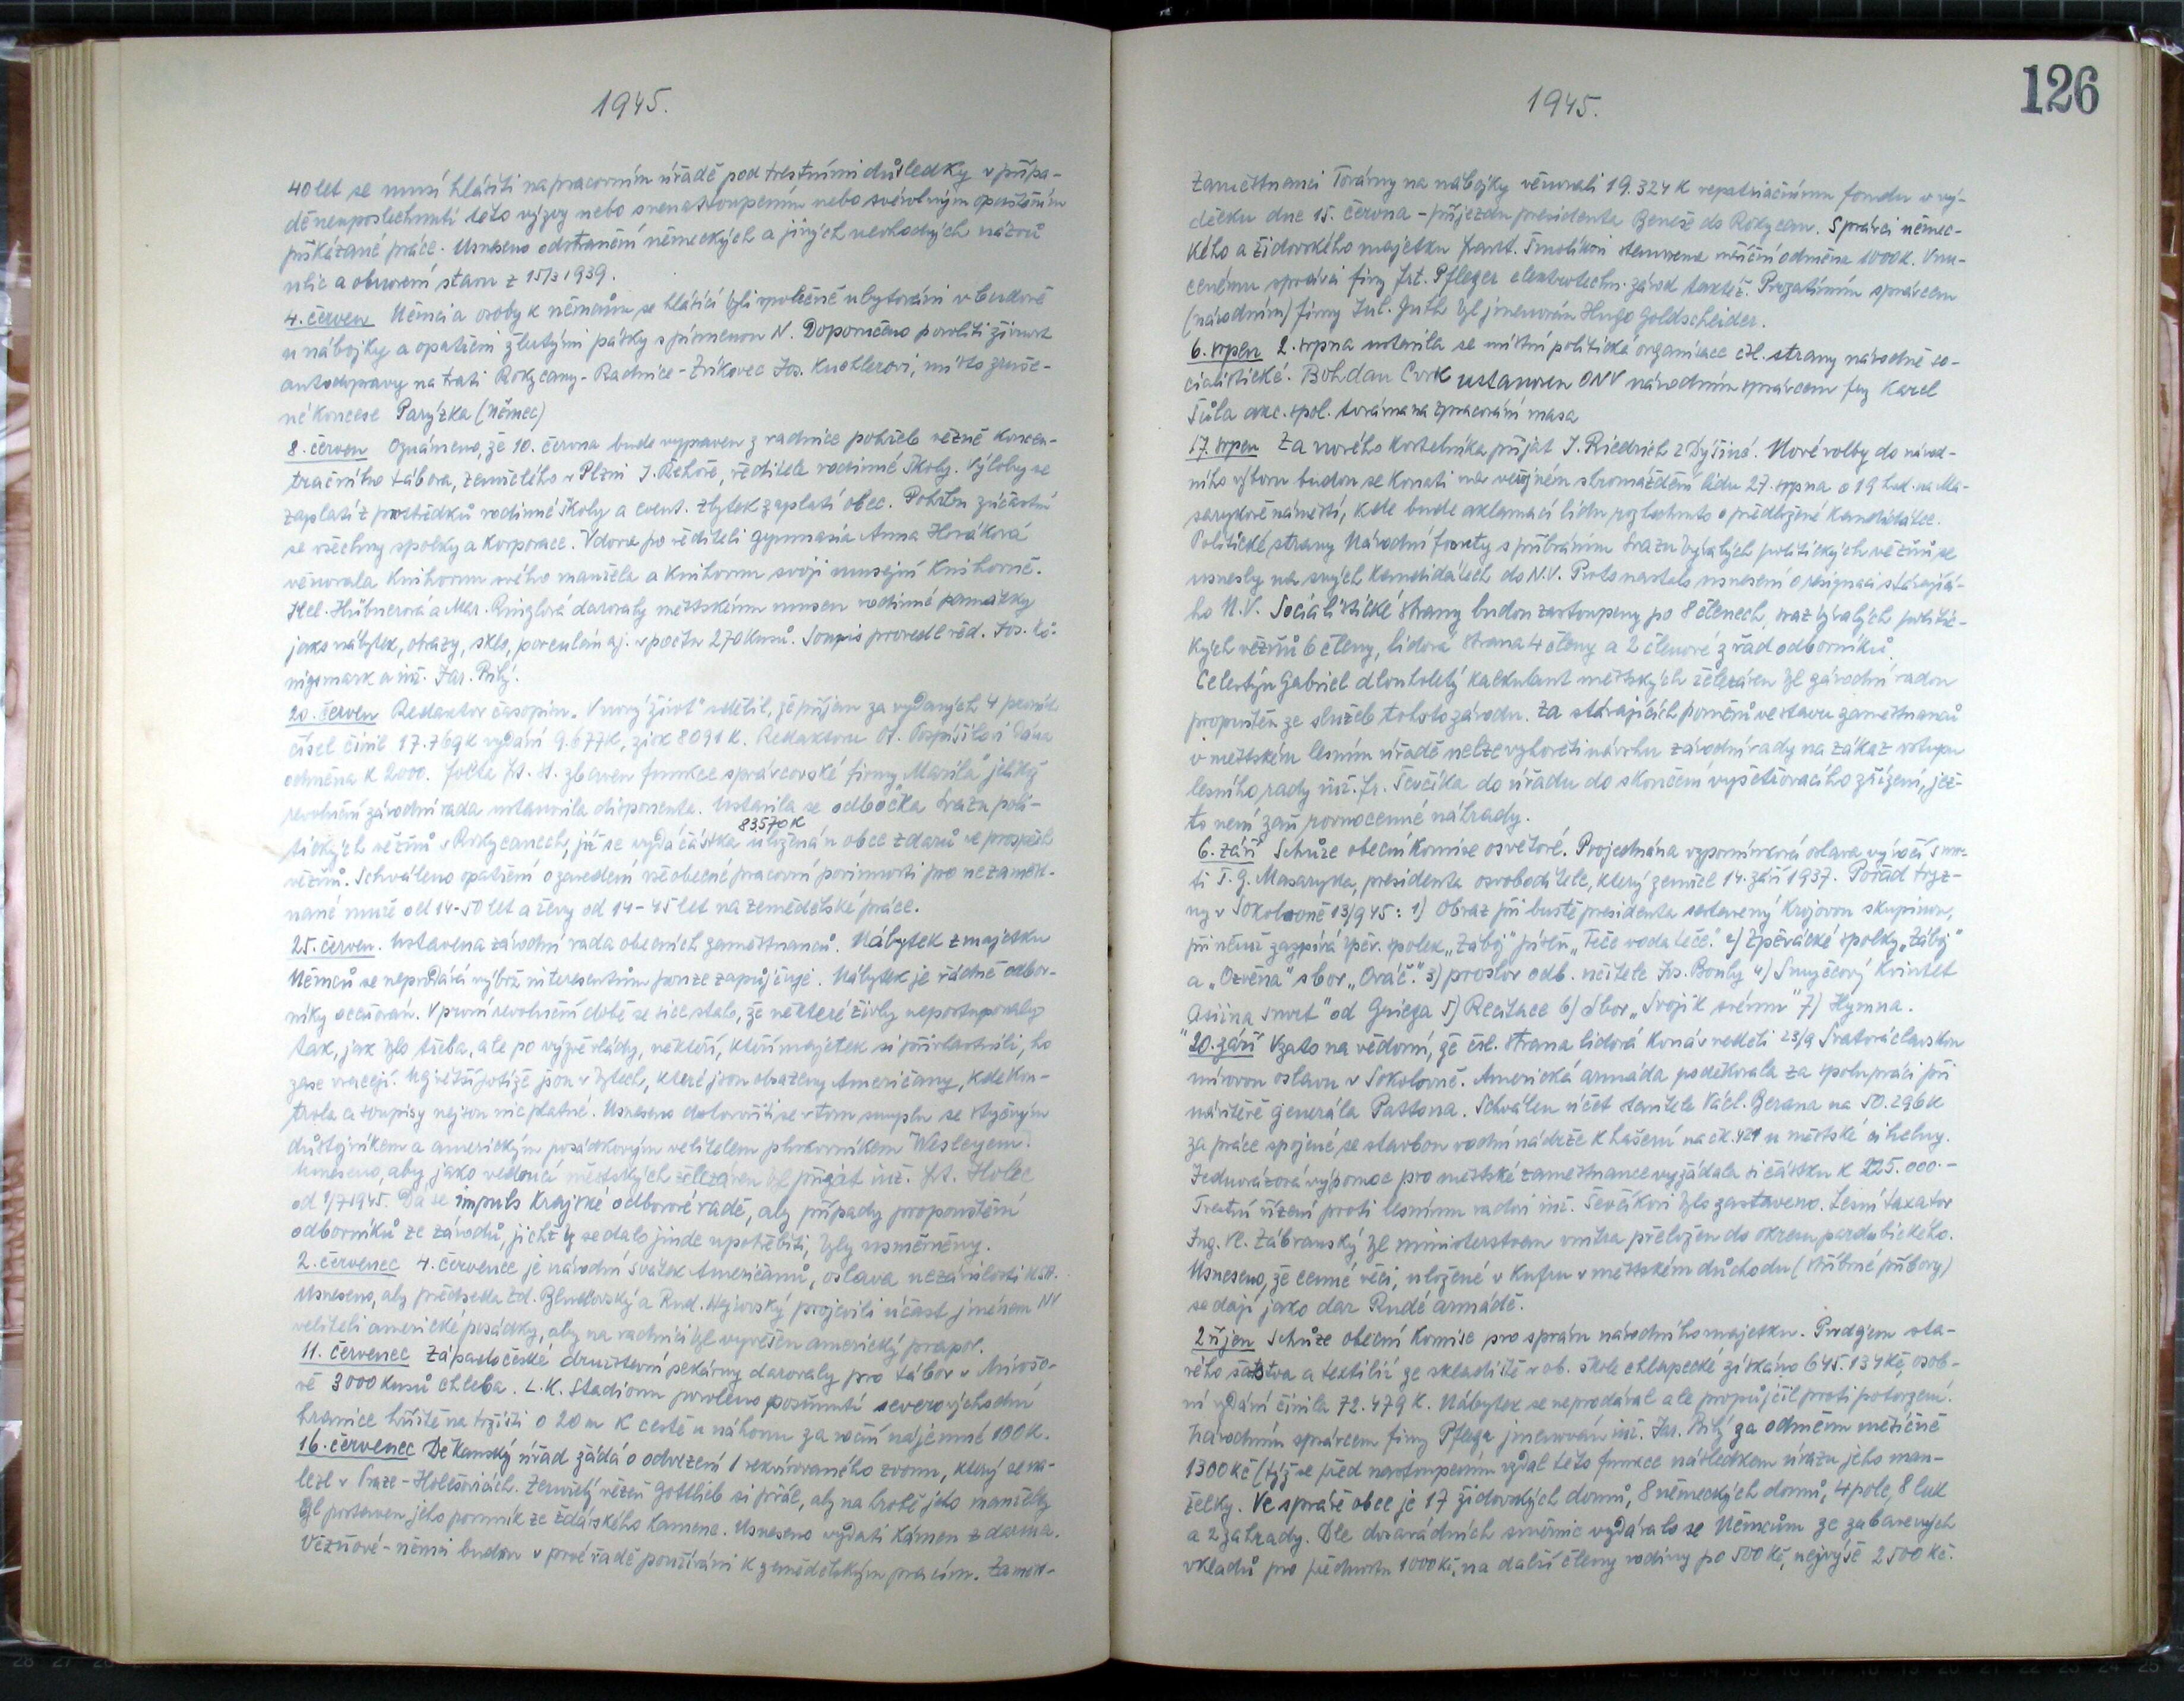 1945.
40 let se musí hlásiti na pracovním úřadě pod trestními důsledky v přípa-
dě neuposlechnutí této výzvy nebo s nenastoupením nebo svévolným opuštěním
přikázané práce. Usneseno odstranění německých a jiných nevhodných názvů
ulic a obnovení stavu z 15/3 1939.
4. červen Němci a osoby k němcům se hlásící byli společně ubytováni v budově
u nábojky a opatřeni žlutými pásky s písmenou N. Doporučeno povoliti živnost
autodopravy na trati Rokycany - Radnice - Zvíkovec Jos. Kuchlerovi, místo zruše-
né koncese Parýzka (němec)
8. červen Oznámeno, že 10. června bude vypraven z radnice pohřeb vězně koncen-
tračního tábora, zemřelého v Plzni J. Řehoře, ředitele rodinné školy. Výlohy se
zaplatí z prostředků rodinné školy a event. zbytek zaplatí obec. Pohřbu zúčastní
se všechny spolky a korporace. Vdova po řediteli gymnasia Anna Horáková
věnovala knihovnu svého manžela a knihovnu svoji musejní knihovně.
Hel. Hübnerová a Mar. Ringlová darovaly městskému museu rodinné památky
jako nábytek, obrazy, sklo, porculán aj. v počtu 270 kusů. Soupis provedl řed. Jos. Kö-
nigsmark a inž. Jar. Bílý.
20. červen Redaktor časopisu „V nový život" sdělil, že příjem za vydaných 4 prvních
čísel činil 17.769 K vydání 9.677 K, zisk 8091 K. Redaktoru Ot. Pospíšilovi dána
odměna K 2000. Fořta Fr. st. zbaven funkce správcovské firmy „Marila" jelikož
revoluční závodní rada ustanovila disponenta. Ustavila se odbočka svazu poli-
83570 K
tických vězňů v Rokycanech, jíž se vydá částka uložená u obce z darů ve prospěch
vězňů. Schváleno opatření o zavedení všeobecné pracovní povinnosti pro nezaměst-
nané muže od 14-50 let a ženy od 14-45 let na zemědělské práce.
25. červen. Ustavena závodní rada obecních zaměstnanců. Nábytek z majetku
Němců se neprodává nýbrž interesentům pouze zapůjčuje. Nábytek je řádně odbor-
níky oceňován. V první revoluční době se sice stalo, že některé živly nepostupovaly
tak, jak bylo třeba, ale po výzvě vlády, někteří, kteří majetek si přivlastnili, ho
zase vracejí. Největší potíže jsou v bytech, které jsou obsazeny Američany, kde kon-
trola a soupisy nejsou nic platné. Usneseno dohovořiti se v tom smyslu se styčným
důstojníkem a americkým posádkovým velitelem plukovníkem Wesleyem.
Usneseno, aby jako vedoucí městských železáren byl přijat inž. Fr. Holec
od 1/7 1945. Dá se impuls Krajské odborové radě, aby případy propouštění
odborníků ze závodů, jichž by se dalo jinde upotřebiti, byly usměrněny.
2. červenec 4. července je národní svátek Američanů, oslava nezávislosti USA.
Usneseno, aby předseda Zd. a Rud. projevili účast jménem NV
veliteli americké posádky, aby na radnici byl vyvěšen americký prapor.
11. červenec Západočeské družstevní pekárny darovaly pro tábor v Mirošo-
vě 3000 kusů chleba. L.K. Stadionu povoleno posunutí severovýchodní
hranice hřiště na tržišti o 20 m k cestě u náhonu za roční nájemné 100 K.
16. červenec Děkanský úřad žádá o odvezení 1 rekvírovaného zvonu, který se na-
lezl v Praze-Holešovicích. Zemřelý vězeň Gottlieb si přál, aby na hrobě jeho manželky
byl postaven jeho pomník ze žďárského kamene. Usneseno vydati kámen zdarma.
Vězňové-němci budou v prvé řadě používáni k zemědělským pracím. Zaměst-
126
1945.
Zaměstnanci Továrny na nábojky věnovali 19.324 K repatriačnímu fondu v vý-
děčku dne 15. června - příjezdu presidenta Beneše do Rokycan. Správci němec-
kého a židovského majetku Frant. Smolíkovi stanovena měsíční odměna 1000 K. Vnu-
cenému správci firmy Frt. Pfleger elektrotechn. závod taktéž. Prozatímním správcem
(národním) firmy Jul. Guth byl jmenován Hugo Goldscheider.
6. srpen 2. srpna ustavila se místní politická organisace čsl. strany národně so-
cialistické. Bohdan Cvrk ustanoven ONV národním správcem fy Karel
Šůla akc. spol. továrna na zpracování masa
17. srpen Za nového kostelníka přijat J. Riedrich z Dýšiné. Nové volby do národ-
ního výboru budou se konati na veřejném shromáždění lidu 27. srpna o 19 hod. na Ma-
sarykově náměstí, kde bude aklamací lidu rozhodnuto o předložené kandidátce.
Politické strany Národní fronty s přibráním Svazu bývalých politických vězňů se
usnesly na svých kandidátech do N.V. Proto nastalo usnesení o resignaci stávající-
ho N.V. Socialistické strany budou zastoupeny po 8 členech, svaz bývalých politic-
kých vězňů 6 členy, lidová strana 4 členy a 2 členové z řad odborníků.
Celestýn Gabriel dlouholetý kalkulant městských železáren byl závodní radou
propuštěn ze služeb tohoto závodu. Za stávajících poměrů ve stavu zaměstnanců
v městském lesním úřadě nelze vyhověti návrhu závodní rady na zákaz vstupu
lesního rady inž. Fr. Ševčíka do úřadu do skončení vyšetřovacího řízení, jež-
to není zaň rovnocenné náhrady.
6. září Schůze obecní komise osvětové. Projednána vzpomínková oslava výročí smr-
ti T. G. Masaryka, presidenta osvoboditele, který zemřel 14. září 1937. Pořad tryz-
ny v Sokolovně 13/9 45: 1) Obraz při bustě presidenta sestavený krojovou skupinou,
při němž zazpívá zpěv. spolek „Záboj" píseň „Teče voda teče." 2) Zpěvácké spolky „Záboj"
a „Ozvěna" sbor „Oráč." 3) proslov odb. učitele Jos. Bouly 4) Smyčcový kvintet
„Asiina smrt" od Griega 5) Recitace 6) Sbor „Svoji k svému" 7) Hymna.
20. září Vzato na vědomí, že čsl. strana lidová koná v neděli 23/9 Svatováclavskou
mírovou oslavu v Sokolovně. Americká armáda poděkovala za spolupráci při
návštěvě generála Pattona. Schválen účet stavitele Václ. Berana na 50.296 K
za práce spojené se stavbou vodní nádrže k hašení na čk. 421 u městské cihelny.
Jednorázová výpomoc pro městské zaměstnance vyžádala si částku K 225.000.-
Trestní řízení proti lesnímu radovi inž. Ševčíkovi bylo zastaveno. Lesní taxator
Ing. Vl. Zábranský byl ministerstvem vnitra přeložen do okresu pardubického.
Usneseno, že cenné věci, uložené v kufru v městském důchodu (stříbrné příbory)
se dají jako dar Rudé armádě.
2 říjen Schůze obecní komise pro správu národního majetku. Prodejem sta-
rého šatstva a textilií ze skladiště v ob. škole chlapecké získáno 645.134 Kč, osob-
ní vydání činila 72.479 K. Nábytek se neprodával ale propůjčil proti potvrzení.
Národním správcem firmy Pfleger jmenován inž. Jar. Bílý za odměnu měsíčně
1300 Kč (týž se před nastoupením vzdal této funkce následkem úrazu jeho man-
želky. Ve správě obce je 17 židovských domů, 8 německých domů, 4 pole, 8 luk
a 2 zahrady. Dle dosavadních směrnic vydávalo se Němcům ze zabavených
vkladů pro přednostu 1000 Kč, na další členy rodiny po 500 Kč, nejvýše 2500 Kč.